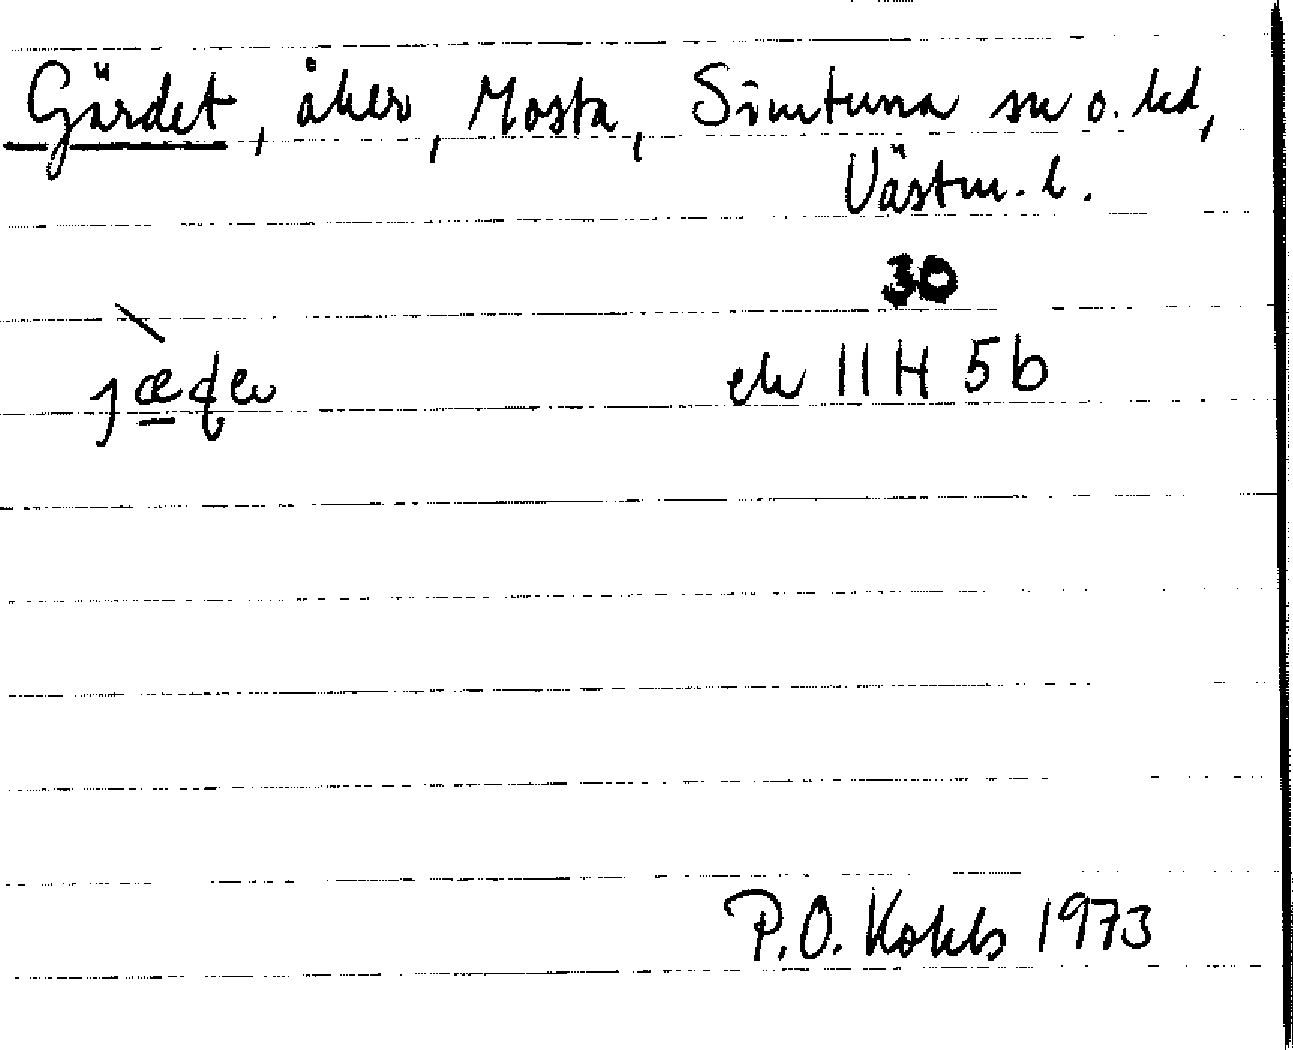 Gärdet, åker, Mosta, Simtuna sn o. hd,
Västm. l.
30
ek 11H 5b
P.O. Kohls 1973